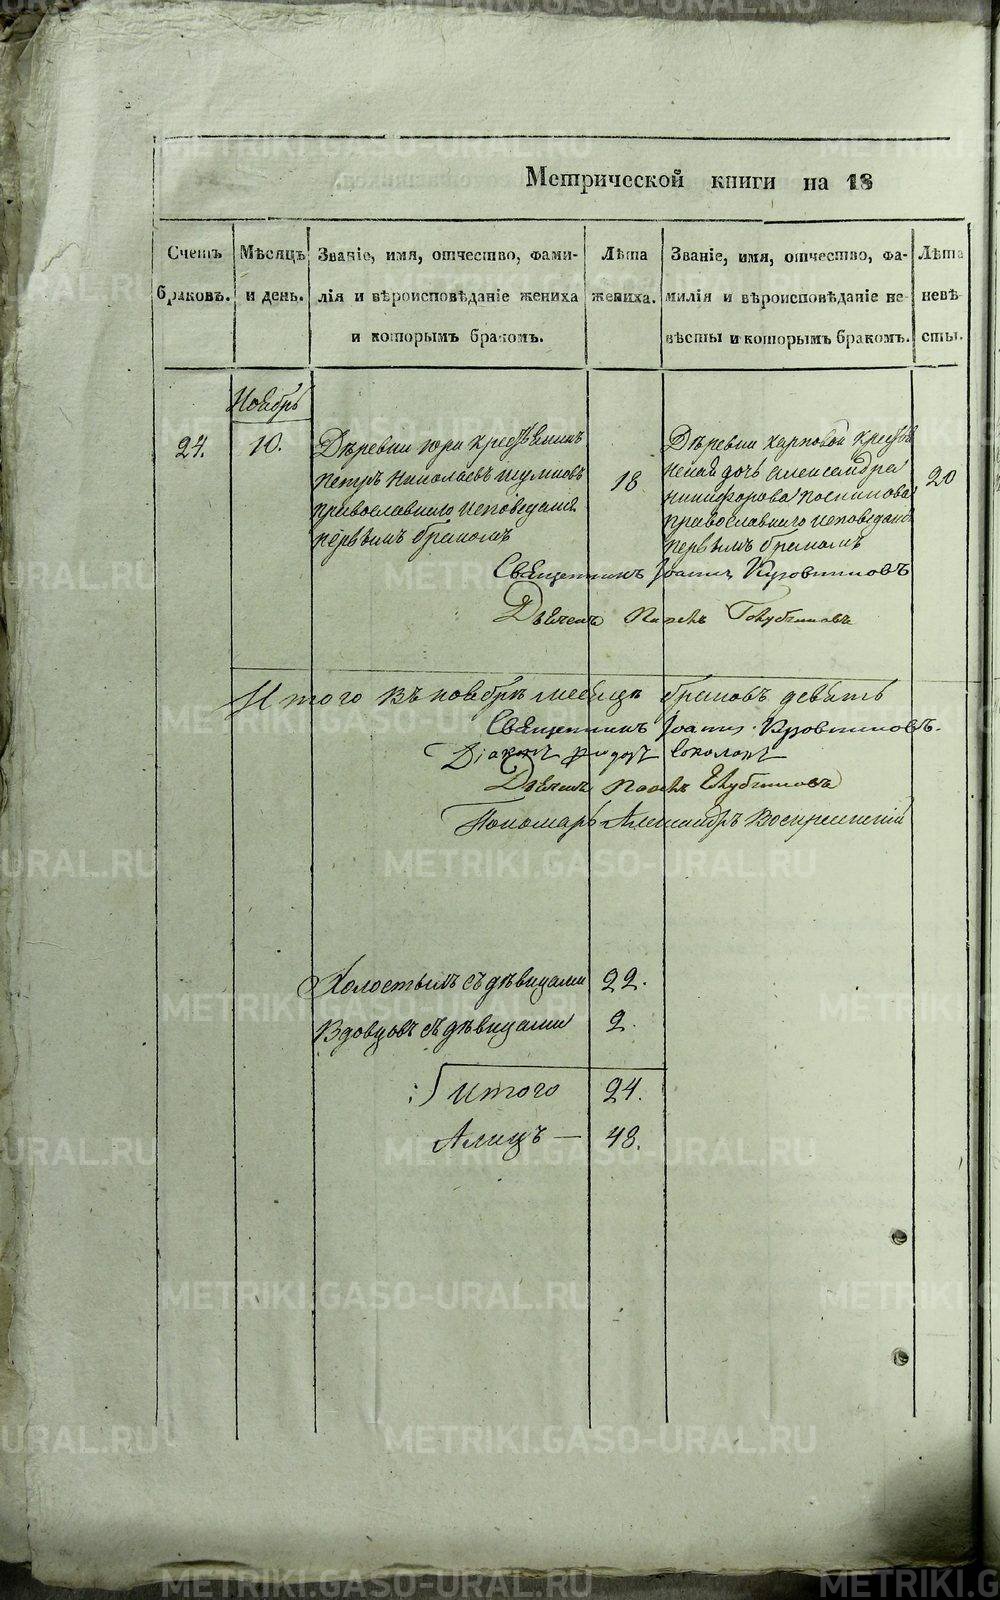 Метрической книги на 18
Счетъ браковъ.
Мѣсяцъ и день.
Званіе, имя, отчество, фами-
лія и вѣроисповѣданіе жениха
и которымъ бракомъ.
Лѣта жениха.
Званіе, имя, отчество, фа-
милія и вѣроисповѣданіе не-
вѣсты и которымъ бракомъ.
Лѣта невѣ-
сты.
Ноябрь
24. 10.
Деревни Юри крестьянинъ
Петръ Николаевъ
православнаго исповѣданія
первымъ бракомъ
18
Деревни Карповой кресть
Александра
Никифорова
православнаго исповѣданія
первымъ бракомъ
20
Священникъ Іоаннъ
Дьячекъ Павелъ Голубчиковъ
Итого въ ноябрѣ месяцѣ браковъ девять
Священникъ Іоаннъ
Діаконъ Соколовъ
Дьячекъ Павелъ Голубчиковъ
Пономарь Александръ Воскресенскій
Холостымъ съ дѣвицами 22.
Вдовцовъ съ дѣвицами 2.
Итого 24.
А лицъ — 48.
METRIKI.GASO-URAL.RU